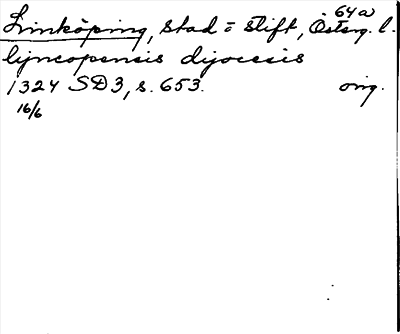 64a
Linköping, stad = stift, Österg. l.
lijncopensis dijocesis
1324 SD3, s. 653. orig.
16/6